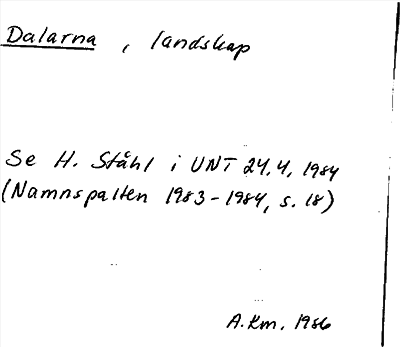 Dalarna, landskap
Se H. Ståhl i UNT 24.4.1984
(Namnspalten 1983-1984, s. 18)
A.Km. 1986